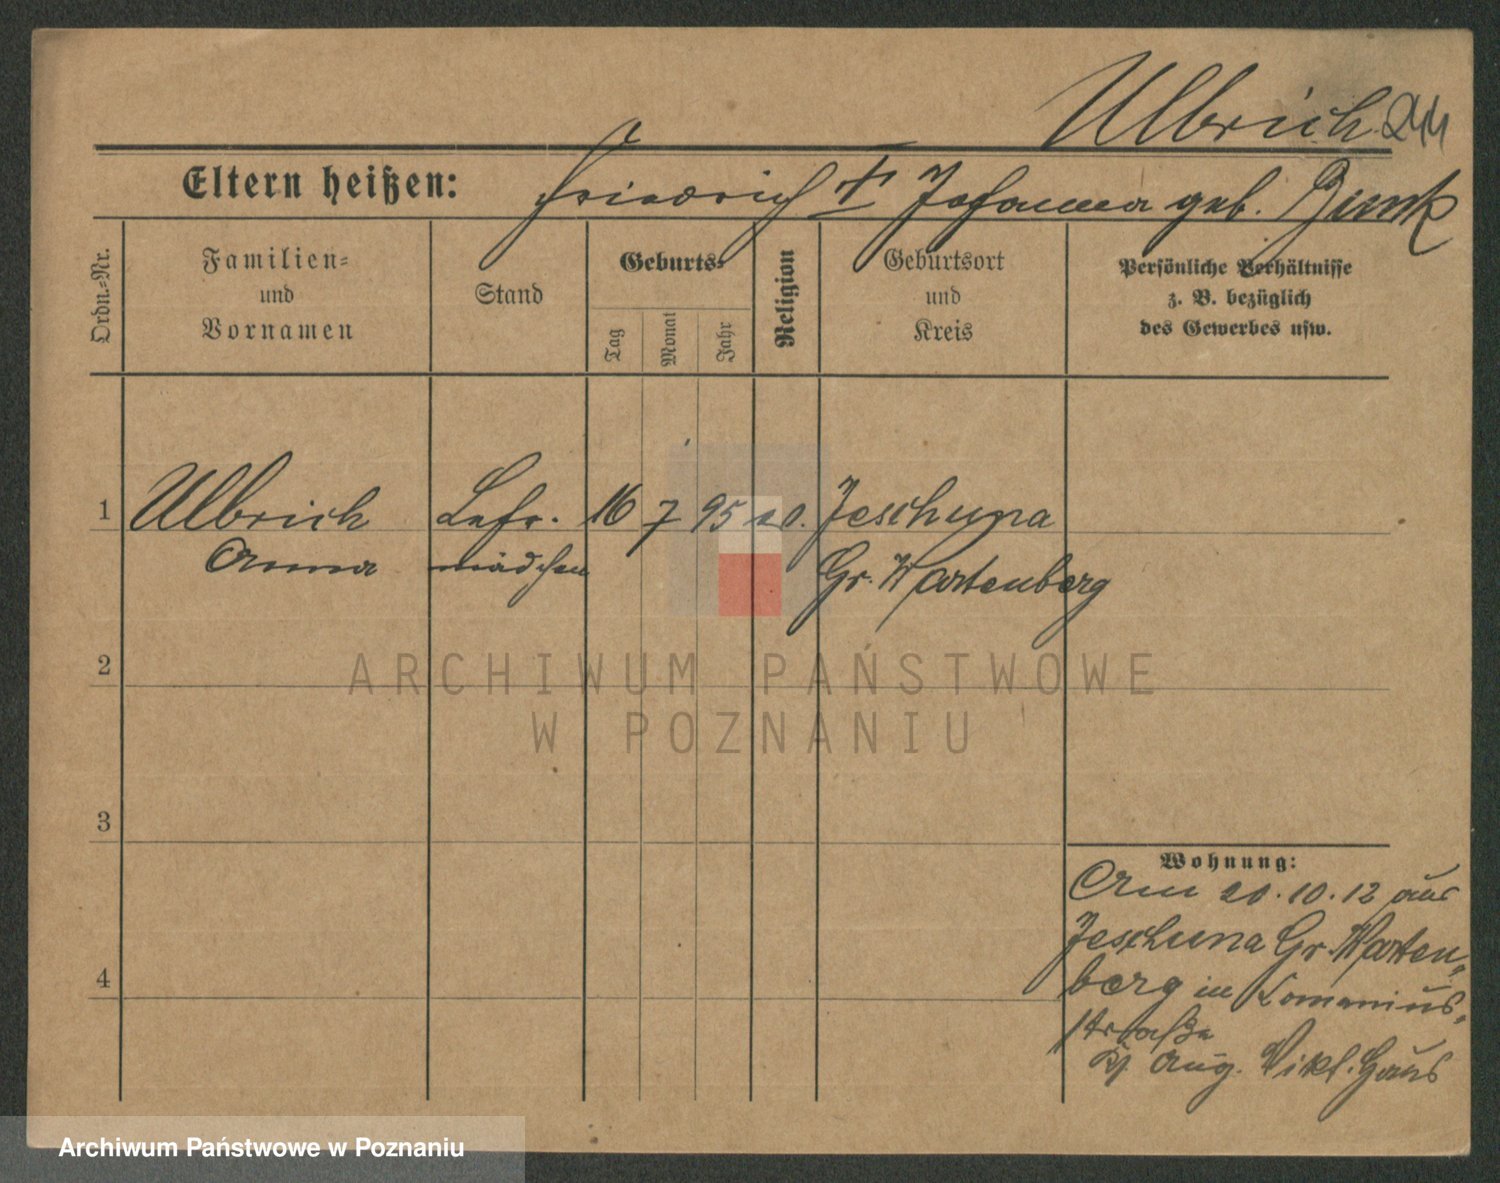 Ulbrich 244
Eltern heißen: Friedrich † Johanna geb.
Ordn.-Nr.
Familien-
und
Vornamen
Stand
Geburts-
Tag
Monat
Jahr
Religion
Geburtsort
und
Kreis
Persönliche Verhältnisse
z. B. bezüglich
des Gewerbes usw.
1 Ulbrich Lehr. 16 7 95 Jeschuna
Anna mädchen Gr. Wartenberg
2
ARCHIWUM PAŃSTWOWE
W POZNANIU
3
Wohnung:
Am 20.10.12 aus
Jeschuna Gr. Warten-
4 berg in
straße
Aug. Vikt. Haus
Archiwum Państwowe w Poznaniu